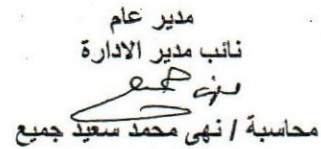 مدير عام
نائب مدير الادارة
محاسبة / نهى محمد سعيد جميع